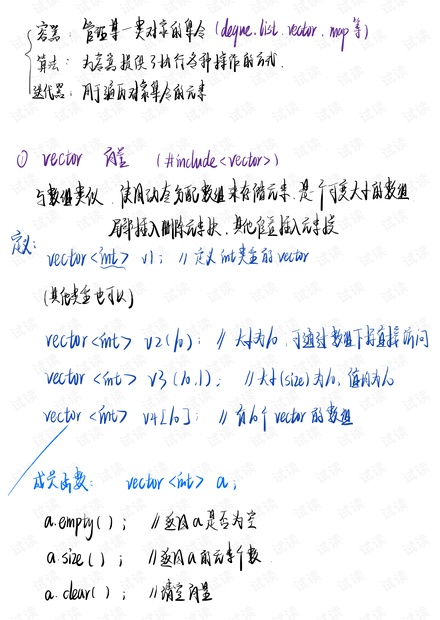 容器：管理某一类对象的集合 (deque.list.vector.map等)
算法：为容器提供了执行各种操作的方式.
迭代器：用于遍历对象集合的元素
① vector 向量 (#include<vector>)
与数组类似.使用动态分配数组来存储元素.是一个可变大小的数组
尾部插入删除元素快.其他位置插入元素慢
定义:
vector<int> v1; //定义int类型的vector
(其他类型也可以)
vector<int> v2(10); //大小为10,可通过数组下标直接访问
vector<int> v3(10,1); //大小(size)为10,值均为
vector<int> v4[10]; //有10个vector的数组
成员函数: vector<int> a;
a.empty(); //返回a是否为空
a.size(); //返回a的元素个数
a.clear(); //清空向量